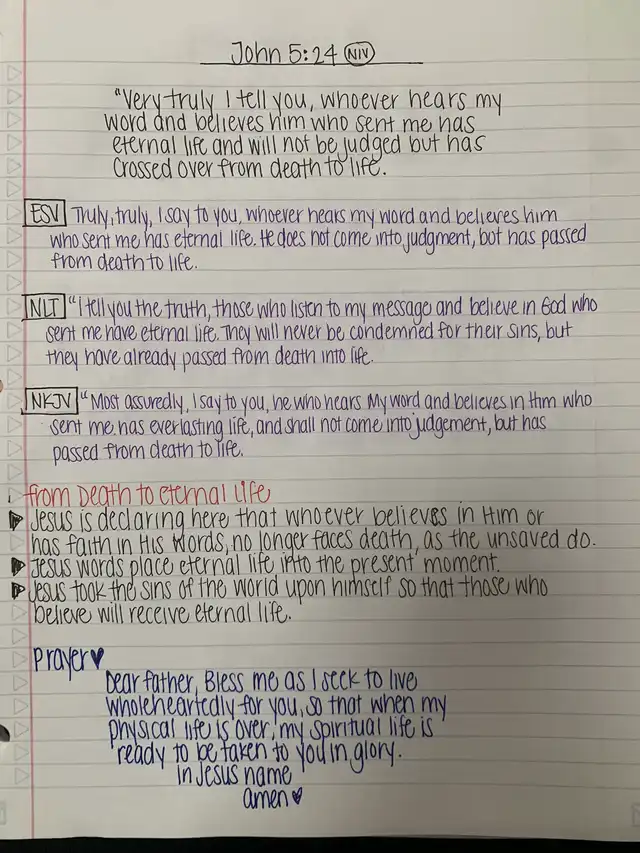 John 5:24 NIV
"Very truly I tell you, whoever hears my
word and believes him who sent me has
eternal life and will not be judged but has
crossed over from death to life.
ESV Truly, truly, I say to you, whoever hears my word and believes him
who sent me has eternal life. He does not come into judgment, but has passed
from death to life.
NLT "I tell you the truth, those who listen to my message and believe in God who
sent me have eternal life. They will never be condemned for their sins, but
they have already passed from death into life.
NKJV "Most assuredly, I say to you, he who hears My word and believes in Him who
sent me has everlasting life, and shall not come into judgement, but has
passed from death to life.
from Death to eternal life
Jesus is declaring here that whoever believes in Him or
has faith in His words, no longer faces death, as the unsaved do.
Jesus words place eternal life into the present moment.
Jesus took the sins of the world upon himself so that those who
believe will receive eternal life.
Prayer♥
Dear father, Bless me as I seek to live
wholeheartedly for you, so that when my
physical life is over, my spiritual life is
ready to be taken to you in glory.
in Jesus name
amen♥